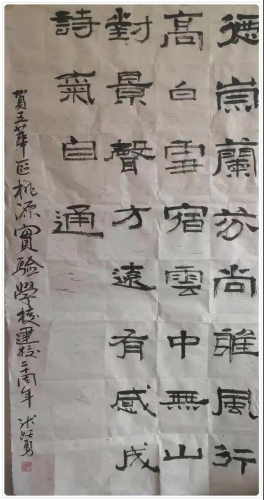 德崇蘭芬尚雅風行
高白雪宿雲中無山
對景聲方遠有感成
詩氣自通
賀五華区桃源實验學校建校二周年